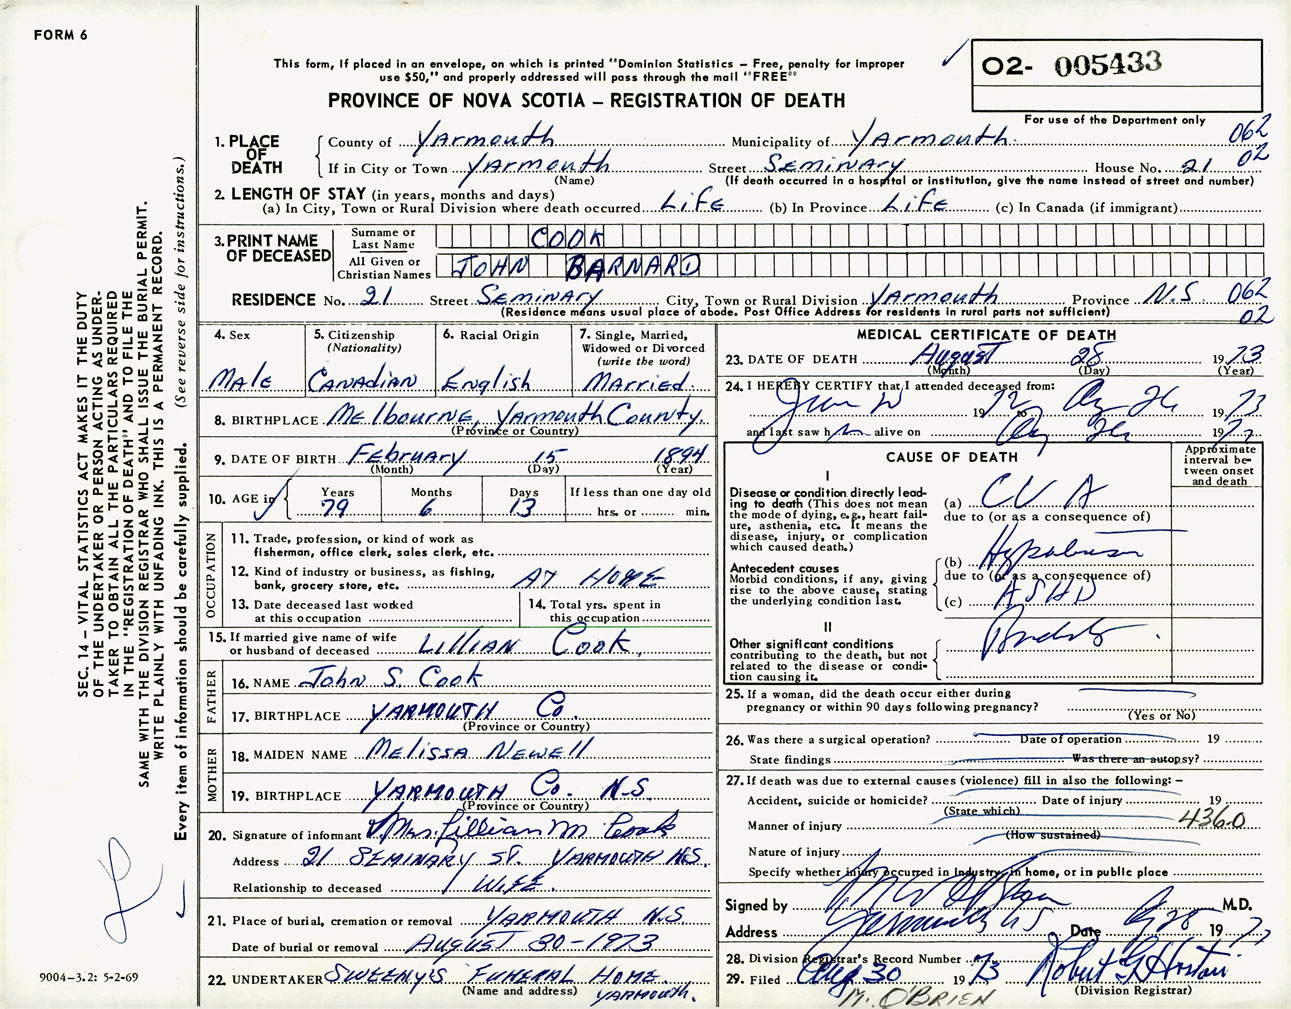 FORM 6
This form, if placed in an envelope, on which is printed "Dominion Statistics – Free, penalty for improper
use $50," and properly addressed will pass through the mail "FREE"
PROVINCE OF NOVA SCOTIA – REGISTRATION OF DEATH
02- 005433
For use of the Department only
1. PLACE OF DEATH
County of Yarmouth Municipality of Yarmouth. 062
If in City or Town Yarmouth Street Seminary House No. 21 02
(Name) (If death occurred in a hospital or institution, give the name instead of street and number)
2. LENGTH OF STAY (in years, months and days)
(a) In City, Town or Rural Division where death occurred Life (b) In Province Life (c) In Canada (if immigrant)
3. PRINT NAME OF DECEASED
Surname or Last Name COOK
All Given or Christian Names JOHN BARNARD
RESIDENCE No. 21 Street Seminary City, Town or Rural Division Yarmouth Province N.S 062
(Residence means usual place of abode. Post Office Address for residents in rural parts not sufficient) 02
4. Sex
Male
5. Citizenship
(Nationality)
Canadian
6. Racial Origin
English
7. Single, Married,
Widowed or Divorced
(write the word)
Married.
8. BIRTHPLACE Melbourne, Yarmouth County.
(Province or Country)
9. DATE OF BIRTH February 15 1894
(Month) (Day) (Year)
10. AGE in
Years Months Days If less than one day old
79 6 13 hrs. or min.
OCCUPATION
11. Trade, profession, or kind of work as
fisherman, office clerk, sales clerk, etc.
12. Kind of industry or business, as fishing,
bank, grocery store, etc. AT HOME
13. Date deceased last worked
at this occupation
14. Total yrs. spent in
this occupation
15. If married give name of wife
or husband of deceased LILLIAN Cook.
FATHER
16. NAME John S. Cook
17. BIRTHPLACE YARMOUTH Co.
(Province or Country)
MOTHER
18. MAIDEN NAME Melissa Newell
19. BIRTHPLACE YARMOUTH Co. N.S.
(Province or Country)
20. Signature of informant Mrs. Lillian M Cook
Address 21 SEMINARY ST. YARMOUTH N.S.
Relationship to deceased WIFE.
21. Place of burial, cremation or removal YARMOUTH N.S
Date of burial or removal AUGUST 30-1973
22. UNDERTAKER SWEENY'S FUNERAL HOME.
(Name and address) YARMOUTH.
MEDICAL CERTIFICATE OF DEATH
23. DATE OF DEATH August 28 1973
(Month) (Day) (Year)
24. I HEREBY CERTIFY that I attended deceased from:
19 72 to 19 73
and last saw h im alive on 19
CAUSE OF DEATH
Approximate
interval be-
tween onset
and death
I
Disease or condition directly lead-
ing to death (This does not mean
the mode of dying, e.g., heart fail-
ure, asthenia, etc. It means the
disease, injury, or complication
which caused death.)
(a) CVA
due to (or as a consequence of)
(b)
due to (or as a consequence of)
Antecedent causes
Morbid conditions, if any, giving
rise to the above cause, stating
the underlying condition last.
(c) ASHD
II
Other significant conditions
contributing to the death, but not
related to the disease or condi-
tion causing it.
25. If a woman, did the death occur either during
pregnancy or within 90 days following pregnancy?
(Yes or No)
26. Was there a surgical operation? Date of operation 19
State findings Was there an autopsy?
27. If death was due to external causes (violence) fill in also the following: –
Accident, suicide or homicide? Date of injury 19
(State which)
Manner of injury 4360
(How sustained)
Nature of injury
Specify whether injury occurred in industry, in home, or in public place
Signed by M.D.
Address Yarmouth NS Date 19
28. Division Registrar's Record Number
29. Filed Aug 30 19 73
(Division Registrar)
M. O'BRIEN
SEC. 14 – VITAL STATISTICS ACT MAKES IT THE DUTY
OF THE UNDERTAKER OR PERSON ACTING AS UNDER-
TAKER TO OBTAIN ALL THE PARTICULARS REQUIRED
IN THE "REGISTRATION OF DEATH" AND TO FILE THE
SAME WITH THE DIVISION REGISTRAR WHO SHALL ISSUE THE BURIAL PERMIT.
WRITE PLAINLY WITH UNFADING INK. THIS IS A PERMANENT RECORD.
Every item of information should be carefully supplied. (See reverse side for instructions.)
9004-3.2: 5-2-69